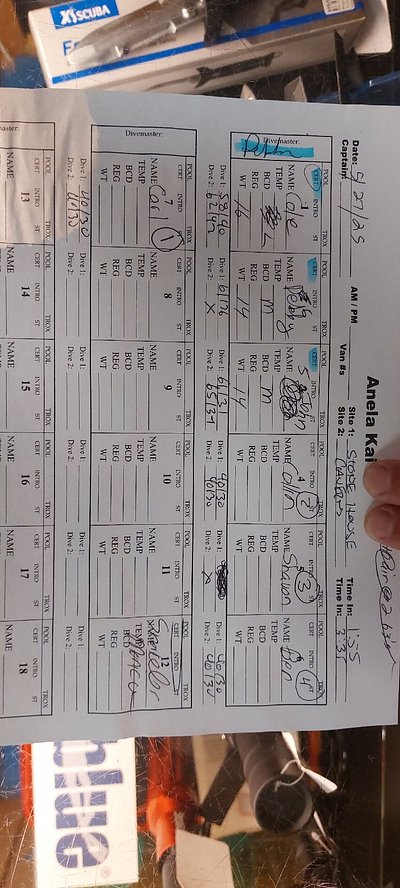 XTSCUBA
Anela Kai
Date: 5/27/25 AM / PM Site 1: STONE HOUSE Time In: 1:55
Captain: Van #s Site 2: Time In: 3:35
Divemaster:
POOL TROX POOL TROX POOL TROX POOL TROX POOL TROX POOL TROX
CERT INTRO ST CERT INTRO ST CERT INTRO ST CERT INTRO ST CERT INTRO ST CERT INTRO ST
1 4 2 3 4
NAME Cole NAME Debby NAME NAME Collin NAME Shawn NAME
TEMP TEMP TEMP TEMP TEMP TEMP
BCD L BCD M BCD M BCD BCD BCD
REG REG REG REG REG REG
WT 16 WT 14 WT 14 WT WT WT
Dive 1: 58/40 Dive 1: 61/36 Dive 1: 61/31 Dive 1: 40/30 Dive 1: Dive 1: 40/30
Dive 2: 62/42 Dive 2: X Dive 2: 65/34 Dive 2: 40/30 Dive 2: X Dive 2: 40/30
Divemaster:
POOL TROX POOL TROX POOL TROX POOL TROX POOL TROX POOL TROX
CERT INTRO ST CERT INTRO ST CERT INTRO ST CERT INTRO ST CERT INTRO ST CERT INTRO ST
7 1 8 9 10 11 12
NAME Carl NAME NAME NAME NAME NAME Snorkeler
TEMP TEMP TEMP TEMP TEMP TEMP
BCD BCD BCD BCD BCD BCD
REG REG REG REG REG REG
WT WT WT WT WT WT
Dive 1: 40/30 Dive 1: Dive 1: Dive 1: Dive 1: Dive 1:
Dive 2: 40/30 Dive 2: Dive 2: Dive 2: Dive 2: Dive 2:
master:
POOL TROX POOL TROX POOL TROX POOL TROX POOL TROX POOL
CERT INTRO ST CERT INTRO ST CERT INTRO ST CERT INTRO ST CERT INTRO ST CERT INTRO ST
13 14 15 16 17 18
NAME NAME NAME NAME NAME NAME
blue®